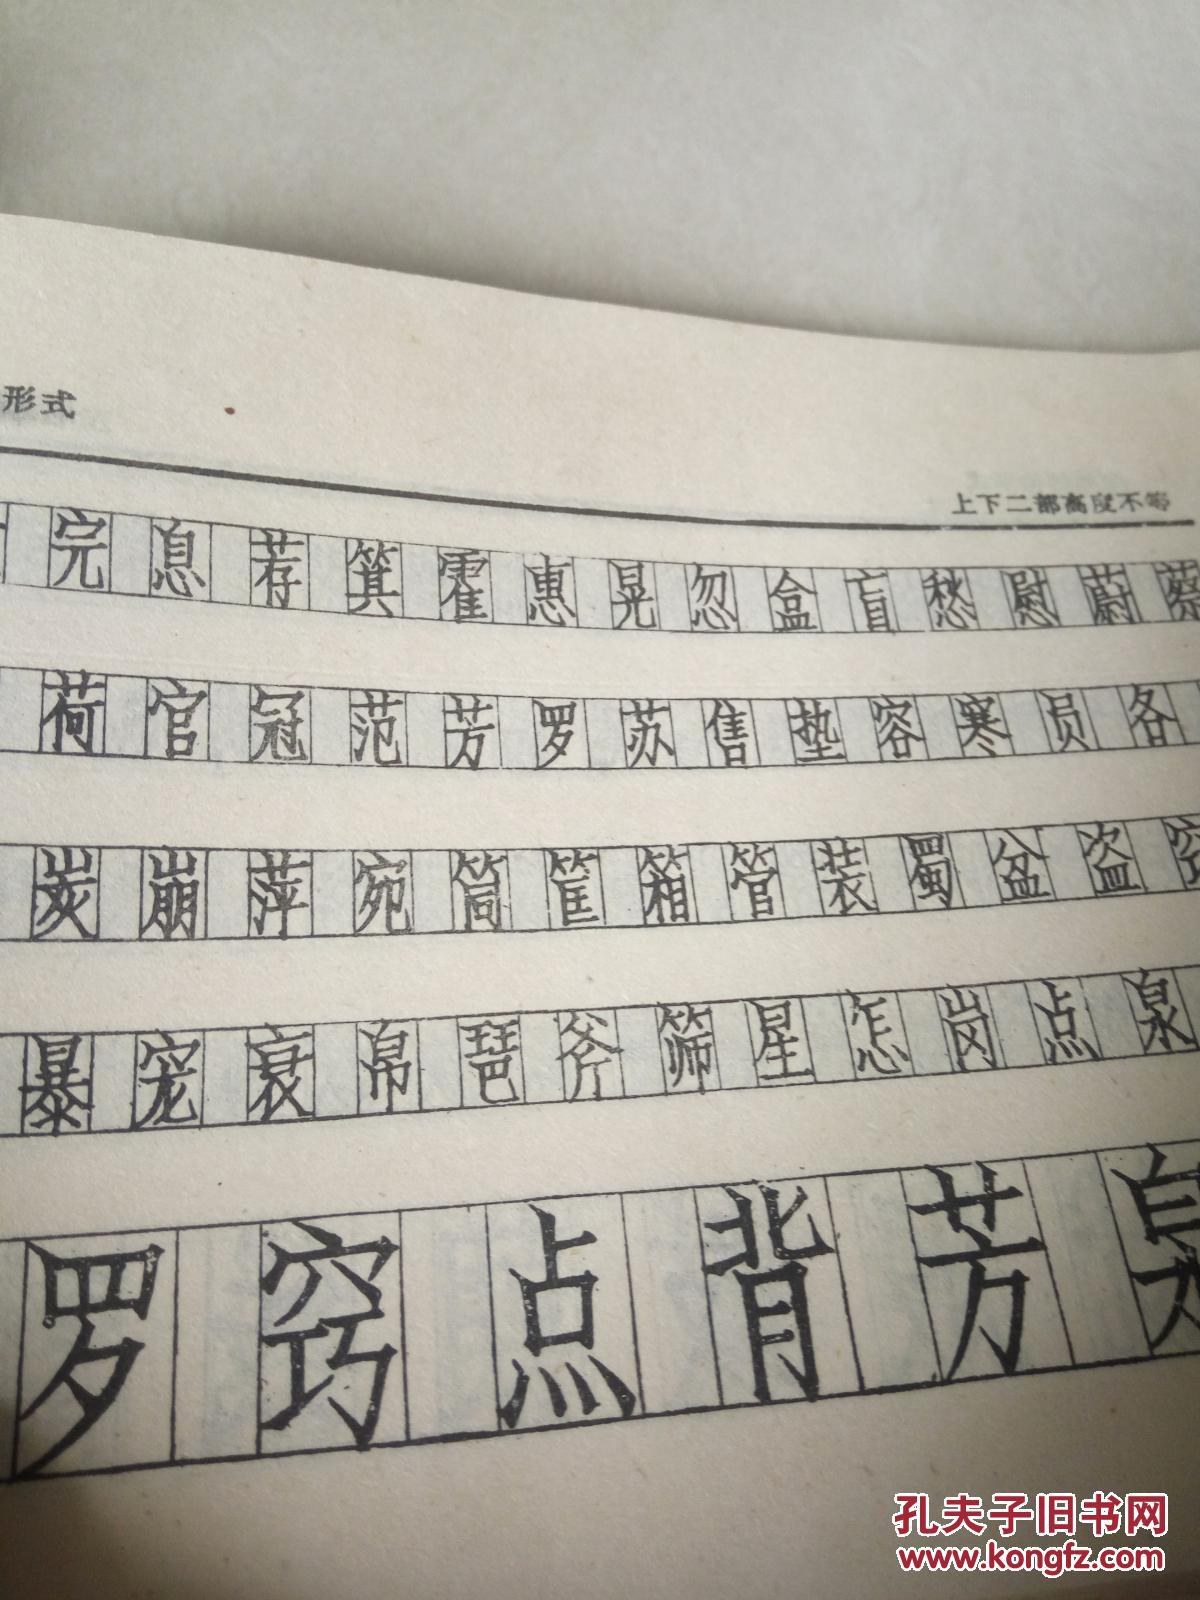 形式
上下二部高度不等
完息荐箕霍惠晃忽盒盲愁慰蔚蔡
荷官冠范芳罗苏售垫容寒员各
炭崩萍宛筒筐箱管装蜀盆盗窍
暴宠衰帛琶斧筛星怎岗点泉
罗窍点背芳泉
孔夫子旧书网
www.kongfz.com